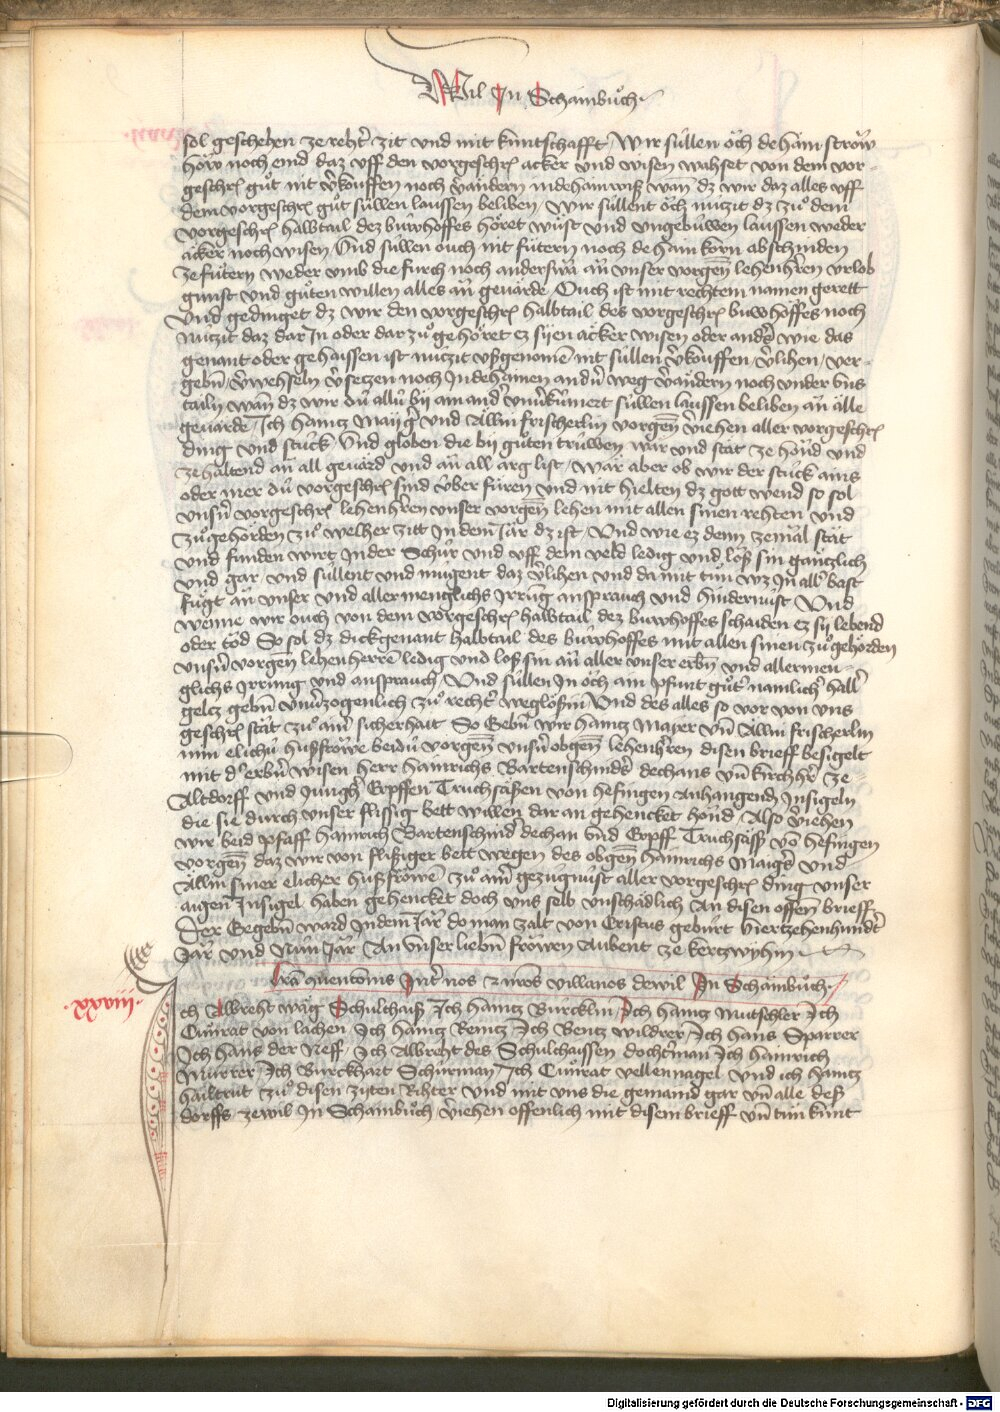 Wil In Schainbuͦch
sol geschehen ze reht̕ zit vnd mit kuntschafft / Wir súllen oͤch dehain strow
hoͤw noch emd daz vff den vorgeschr̄ acker vnd wisen wahset von dem vor-
geschr̄ guͦt nit v̕kouffen noch v̕aͤndern in dehain wiß wan dz wir daz alles vff
dem vorgeschr̄ guͦt súllen laussen beliben / Wir súllent oͤch nutzit dz zuͦ dem
vorgeschr̄ halbtail dez buwhoffes hoͤret wuͤst vnd vngebuwen laussen weder
aͤcker noch wisen / Vnd súllen ouch nit fuͤtern noch dehain korn abschniden
ze fuͤtern weder vmb die furch noch anderswa aͧn vnser vorgen̄ lehenh̕ren vrlob
gunst vnd guͦten willen alles aͧn geuaͤrde Ouch ist mit rechtem namen gerett
Vnd gedinget dz wir den vorgeschr̄ halbtail des vorgeschr̄ buwhoffes noch
nutzit daz dar In oder dar zuͦ gehoͤret ez sijen aͤcker wisen oder and̕s wie das
genant oder gehaissen ist nutzit vßgenomē nit súllen v̕kouffen / v̕lihen / ver-
gebn̄ / v̕wehseln v̕setzen noch In dehainen and̕n weg v̕aͤndern noch vnder vns
tailn wan dz wir dú allú bij ain and̕ vnu̕kúmert súllen laussen beliben aͧn alle
geuaͤrde / Ich Haintz Maijg̕ vnd Aͤllin frischerlin vorgen̄ v̕iehen aller vorgeschr̄
ding vnd stuck / Vnd globen die bij guͦten trúwen / war vnd staͤt ze hond vnd
ze haltend aͧn all geuard vnd aͧn all arglist / Waͤr aber ob wir der stuck ains
oder mer dú vorgeschr̄ sind v̕ber fuͤren vnd nit hielten dz gott wend so sol
vns̕n vorgeschr̄ lehenh̕ren vnser vorgen̄ lehen mit allen sinen rehten vnd
zuͦgehoͤrden zuͦ welher zitt In dem Jar dz ist / Vnd wie ez denn zemal staͤt
vnd funden wirt In der Schúr vnd vff dem veld ledig vnd loß sin gaͤntzlich
vnd gar / vnd súllent vnd múgent daz v̕lihen vnd da mit tuͦn wz In all̕ bast
fuͤgt aͧn vnser vnd allermenglichs Irrung ansprauch vnd hindernúst Vnd
wenne wir ouch von dem vorgeschr̄ halbtail dez buwhoffes schaiden ez sij lebend
oder tod So sol dz dickgenant halbtail des buwhoffes mit allen sinen zuͦgehoͤrden
vns̕n vorgen̄ lehenherrē ledig vnd loß sin aͧn aller vnser erbn̄ vnd allermen-
glichs Irrung vnd ansprauch / Vnd súllen In oͤch ain pfunt guͦt̕ namlich̕ hall̕
geltz gebn̄ vnu̕zogenlich zuͦ recht̕ weglosin Vnd des alles so vor von vns
geschr̄ stat zuͦ ain̕ sicherhait So Gebn̄ wir Haintz Maijer vn̄ Aͤllin frischerlin
min elichú hußfroͤwe beidú vorgen̄ vns̕n obgen̄ lehenh̕ren disen brieff besigelt
mit d̕ erbn̄ wisen herr hainrichs Bartenschnid̕s dechans vn̄ kirchh̕r ze
Altdorff vnd Jungh̕ Eppffen Truchsaͤßen von Hefingen anhangend̕ Insigeln
die sie durch vnser flissig bett willen dar an gehencket hond / Also v̕iehen
wir beid pfaff hainrich Bartenschnid̕ dechan vnd Eppff Truchsaͤss vō hefingen
vorgen̄ daz wir von flißiger bett wegen des obgen̄ hainrichs Maig̕s vnd
Aͤllin siner elicher hußfrowē zuͦ ain̕ gezugnúst aller vorgeschr̄ ding vnser
aigen Insigel haben gehencket doch vns selb vnschaͤdlich An disen offen̄ brieff
Der Gegebn̄ ward In dem Jar do man zalt von Cristus geburt Viertzehenhund̕t
Jar vnd Nún Jar An vnser liebn̄ froͤwen Aubent ze kertzwyhin
l̄ra quencionis Int̕ nos et n̄ros villanos de wil In Schainbuͦch
Ich Albreht waͤg Schulthaiß / Ich haintz Búrcklin / Ich haintz Mutschler Ich
Cuͦnrat von lachen / Ich haintz Rentz Ich Bentz wildrer / Ich hans Sparrer
Ich hans der Neff / Ich Albreht des Schulthaissen dochterman Ich hainrich
Murrer / Ich Burckhart Schúrman / Ich Cuͦnrat vellennagel vnd ich haintz
hailtrut zuͦ disen ziten Rihter vnd mit vns die gemaind gar vn̄ alle deß
dorffs ze wil In Schainbuͦch v̕iehen offenlich mit disem brieff vn̄ tuͦn kunt
Digitalisierung gefördert durch die Deutsche Forschungsgemeinschaft - DFG